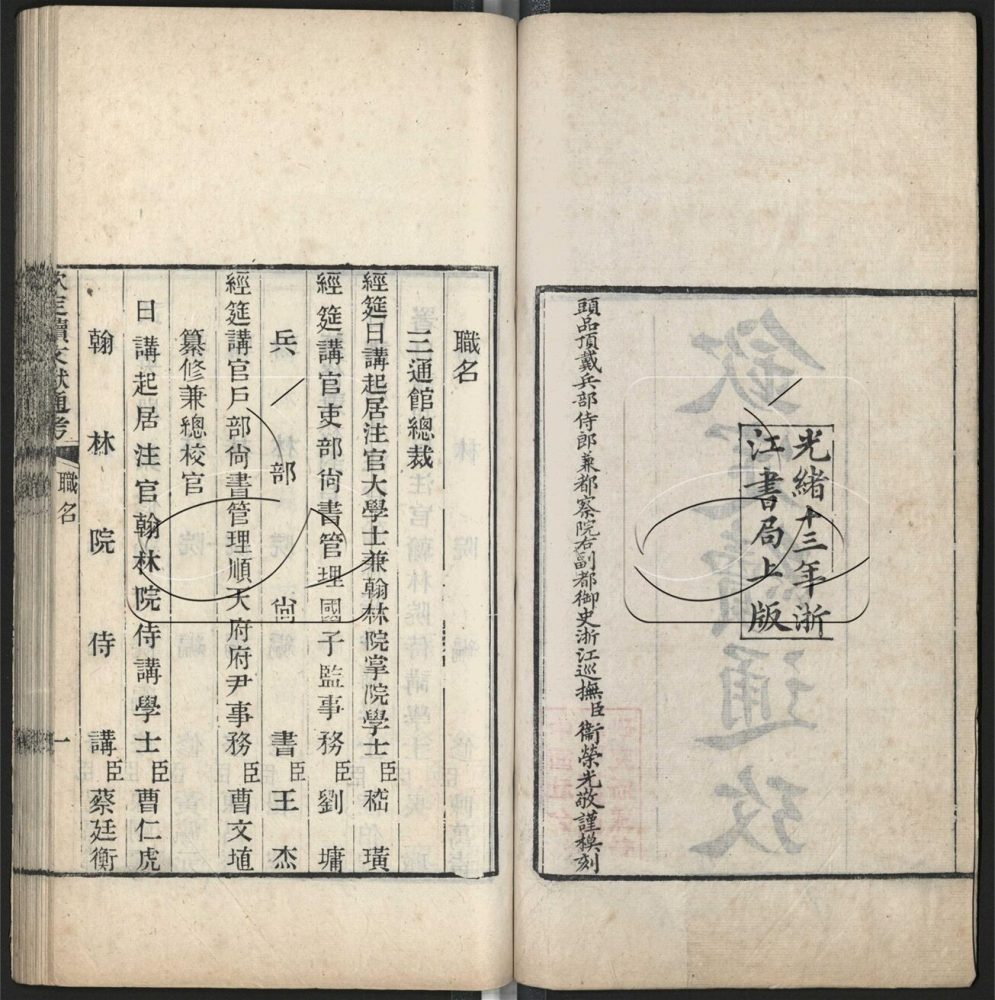 光緒十三年浙
江書局上版
頭品頂戴兵部侍郎兼都察院右副都御史浙江巡撫臣衞榮光敬謹模刻
職名
三通館總裁
經筵日講起居注官大學士兼翰林院掌院學士臣嵇璜
經筵講官吏部尙書管理國子監事務臣劉墉
兵部尙書臣王杰
經筵講官戶部尙書管理順天府府尹事務臣曹文埴
纂修兼總校官
日講起居注官翰林院侍講學士臣曹仁虎
翰林院侍講臣蔡廷衡
欽定續文獻通考
職名
一